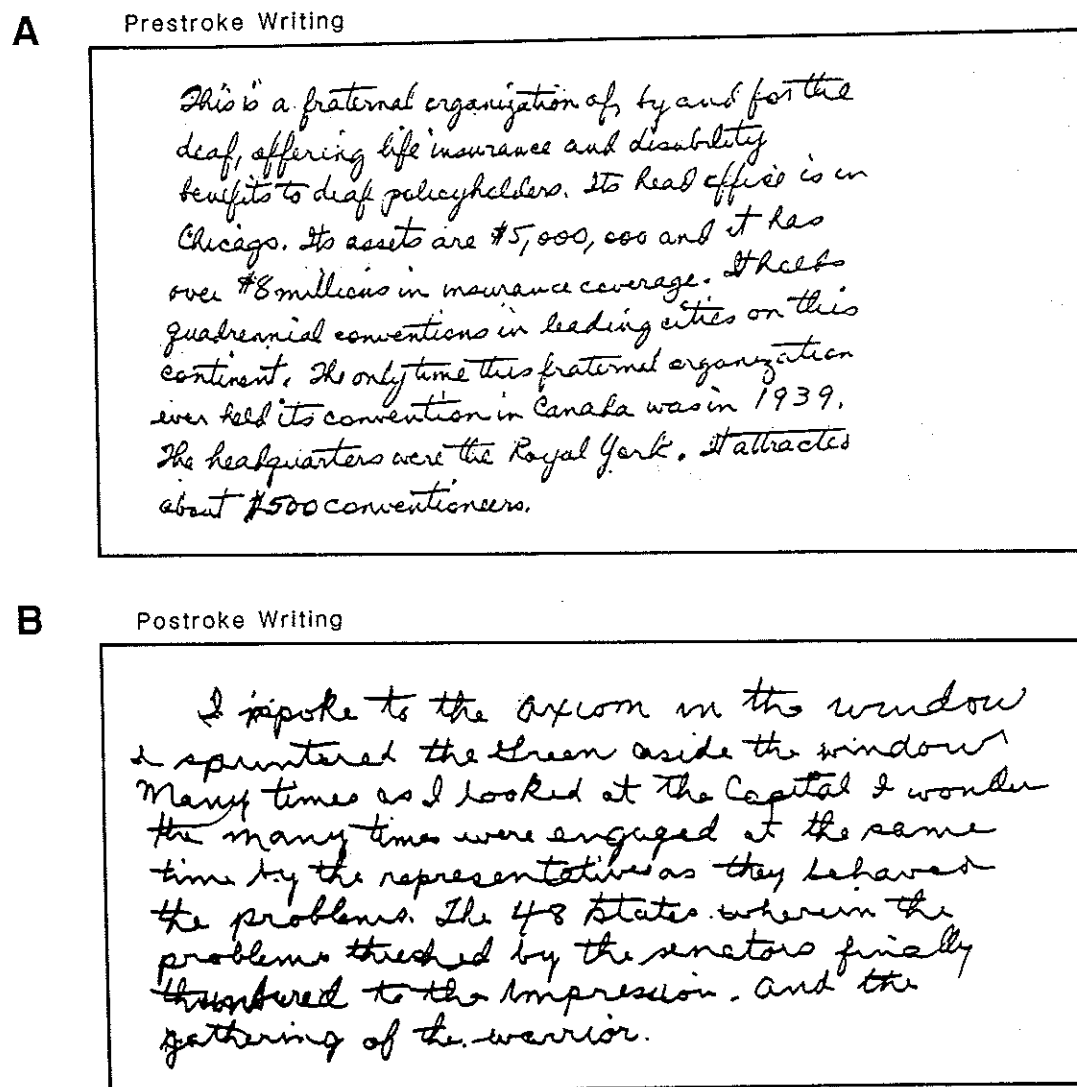 A
Prestroke Writing
This is a fraternal organization of, by and for the
deaf, offering life insurance and disability
benefits to deaf policyholders. Its head office is in
Chicago. Its assets are $5,000,000 and it has
over $8 millions in insurance coverage. It holds
quadrennial conventions in leading cities on this
continent. The only time this fraternal organization
ever held its convention in Canada was in 1939.
The headquarters were the Royal York. It attracted
about 1500 conventioneers.
B
Postroke Writing
I spoke to the axiom in the window
I spruntered the Green aside the window
Many times as I looked at the Capital I wonder
the many times were engaged at the same
time by the representatives as they behaved
the problems. The 48 States wherein the
problems threshed by the senators finally
to the impression. And the
gathering of the warrior.